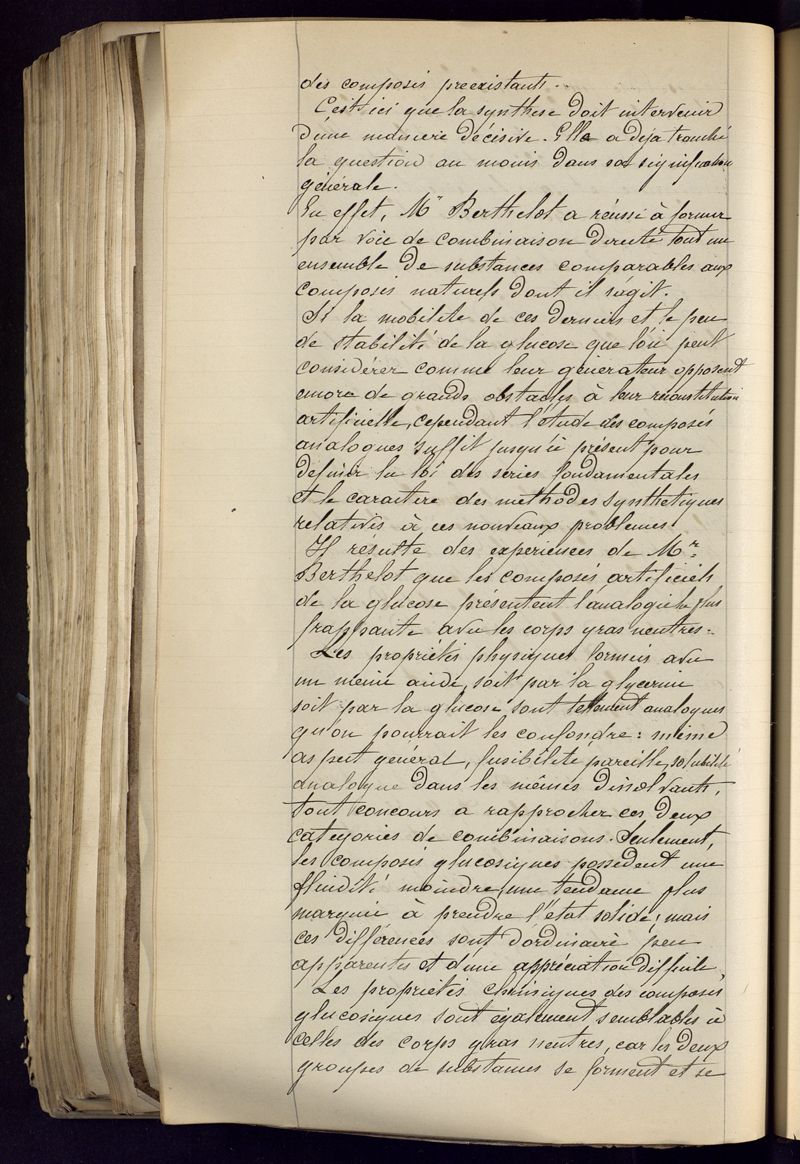 des composés preexistants.
C'est ici que la synthese doit intervenir
d'une maniere décisive. Elle a deja tranché
la question au moins dans sa signification
générale.
En effet, Mr Berthelot a réussi à former
par voie de combinaison directe tout un
ensemble de substances comparables aux
composés naturels dont il s'agit.
Si la mobilité de ces derniers et le peu
de stabilité de la glucose que l'on peut
considérer comme leur générateur opposent
encore de grands obstacles à leur reconstitution
artificielle, cependant l'étude des composés
analogues suffit jusqu'à présent pour
definir la loi des series fondamentales
et le caractere des methodes synthetiques
relatives à ces nouveaux problemes.
Il résulte des experiences de Mr
Berthelot que les composés artificiels
de la glucose présentent l'analogie la plus
frappante avec les corps gras neutres.
Les propriétés physiques formés avec
un meme acide, soit par la glycerine
soit par la glucose sont tellement analogues
qu'on pourrait les confondre: même
aspect général, fusibilité pareille, solubilité
analogue dans les mêmes dissolvants,
tout concours a rapprocher ces deux
categories de combinaisons. Seulement,
les composés glucosiques possedent une
fluidité moindre, une tendance plus
marquée à prendre l'état solide; mais
ces différences sont d'ordinaire peu
apparentes et d'une appréciation difficile.
Les propriétés chimiques des composés
glucosiques sont également semblables à
celles des corps gras neutres, car les deux
groupes de substances se forment et se